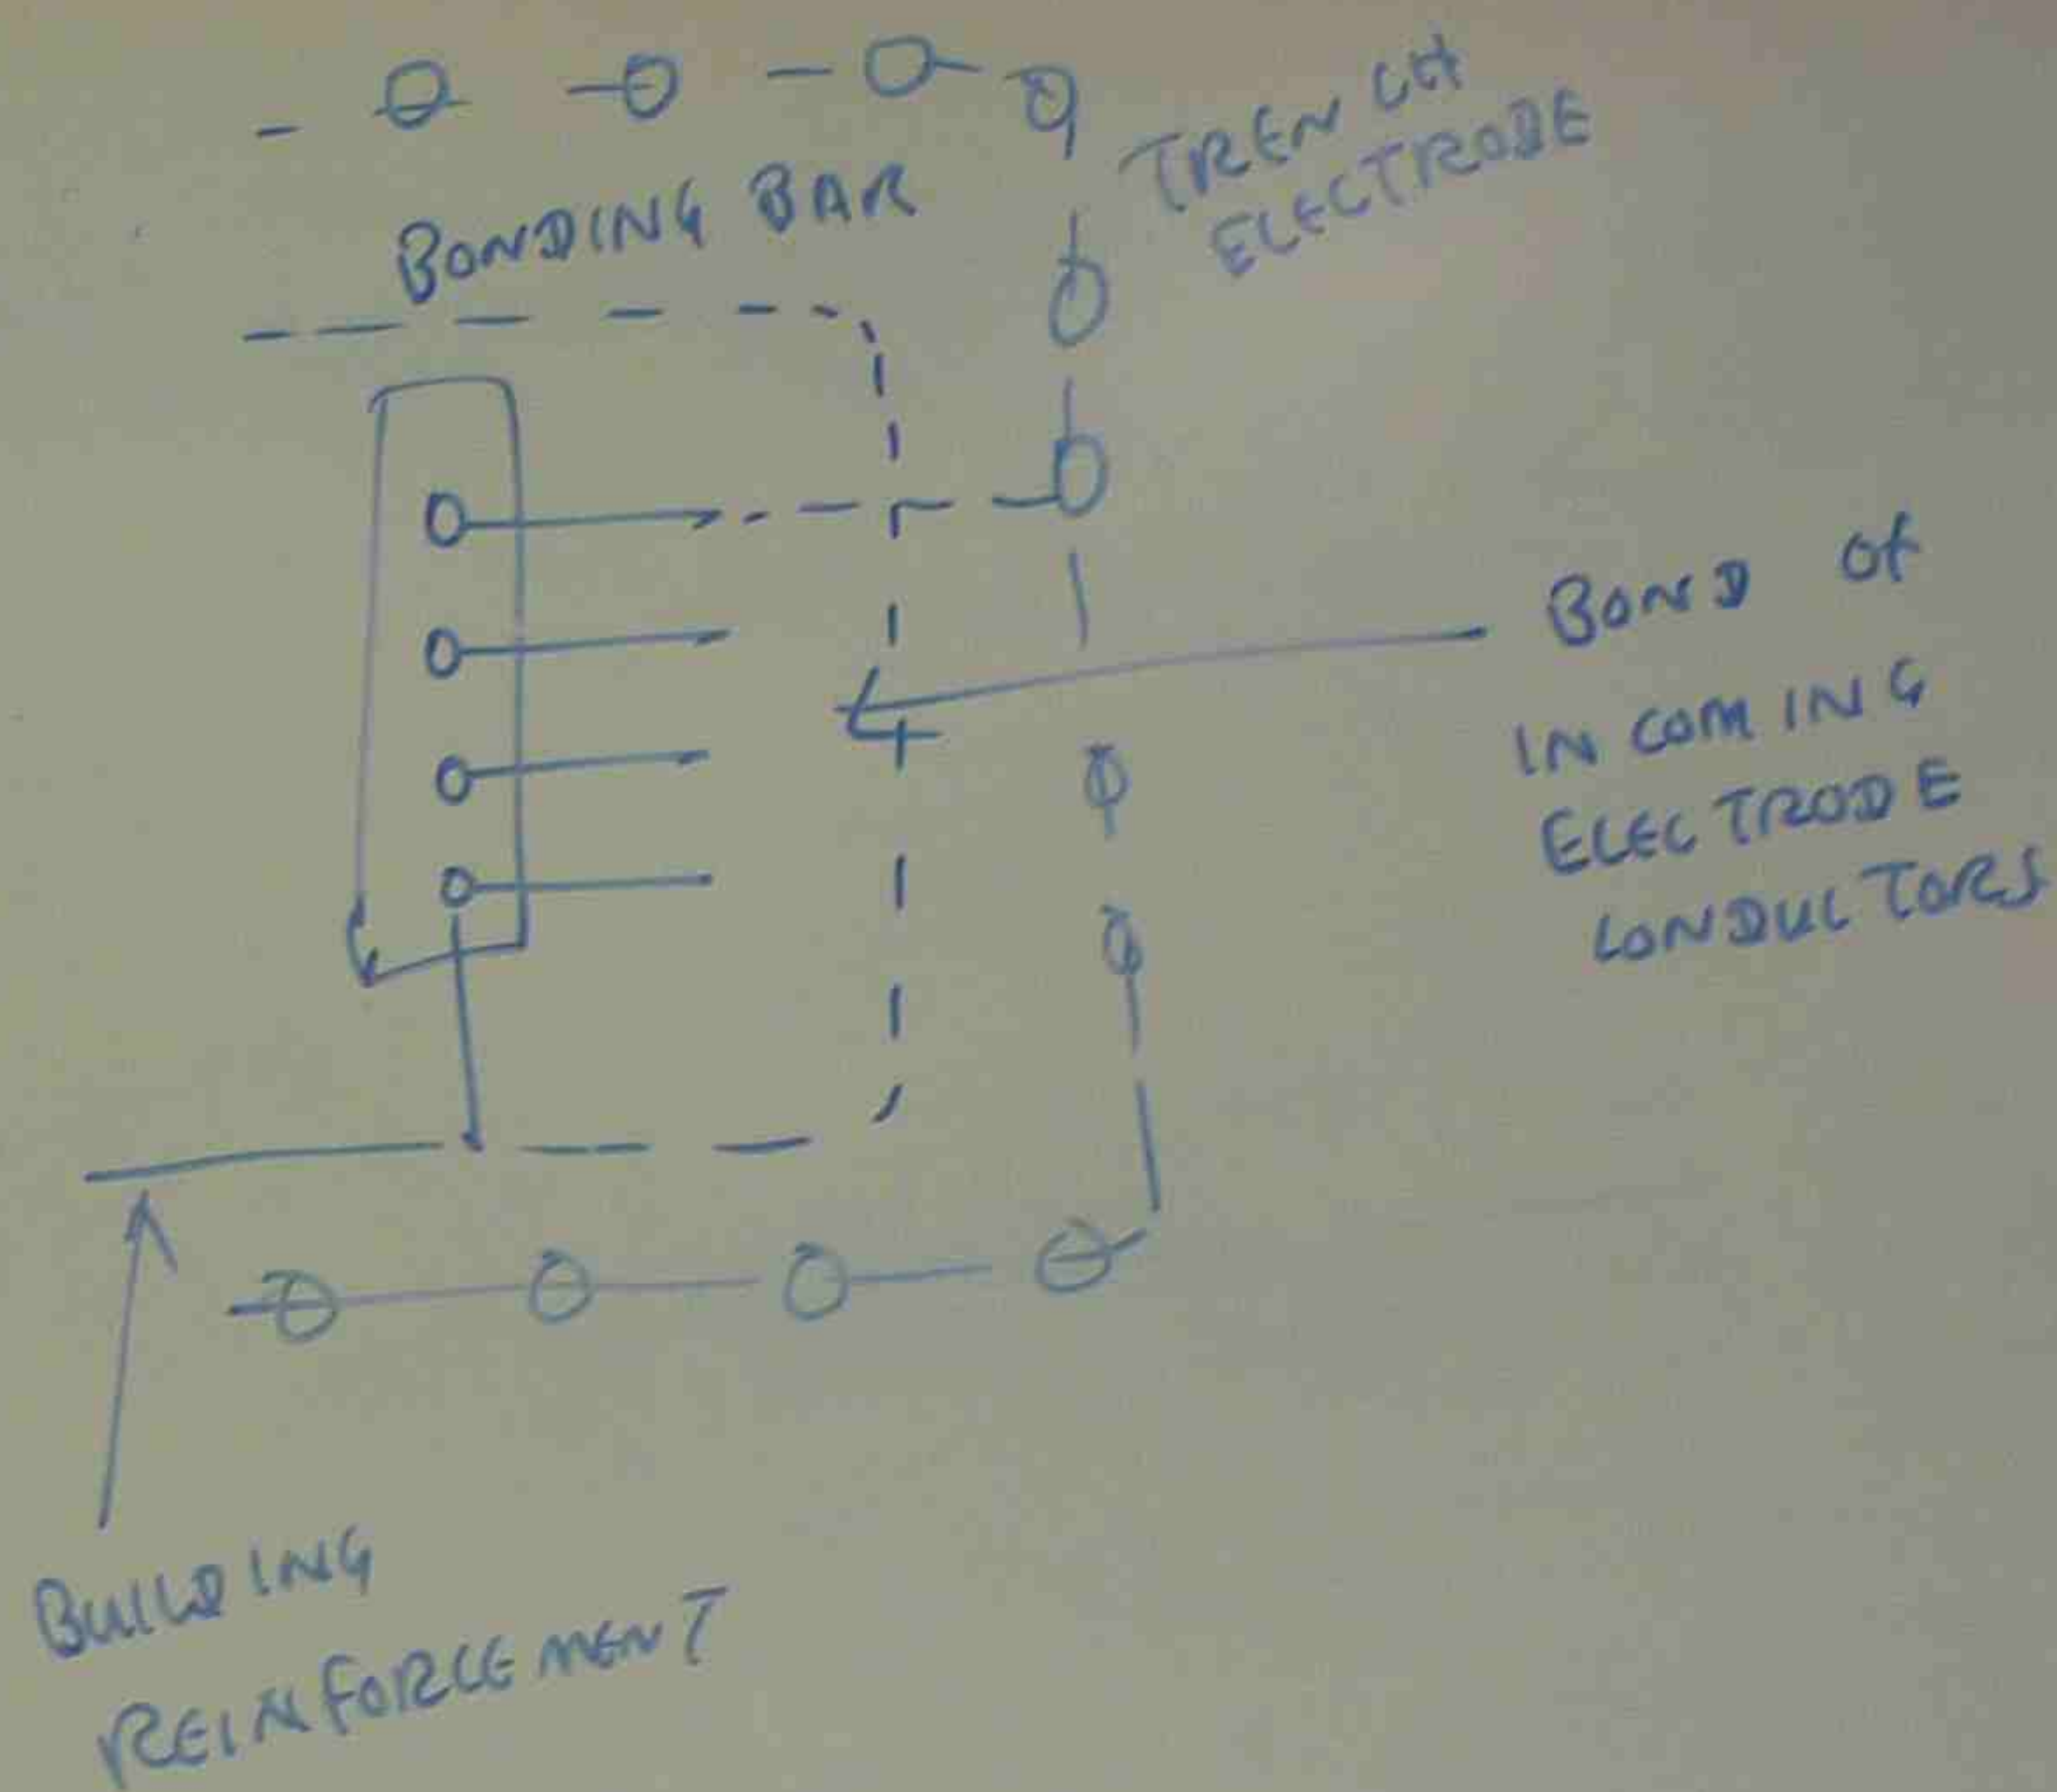 BONDING BAR
TRENCH
ELECTRODE
BOND OF
INCOMING
ELECTRODE
CONDUCTORS
BUILDING
REINFORCEMENT